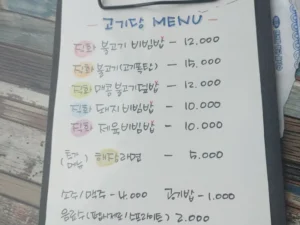 고기당 MENU
직화 불고기 비빔밥 - 12.000
직화 불고기(고기폭탄) - 15.000
직화 매콤불고기덮밥 - 12.000
직화 돼지비빔밥 - 10.000
직화 제육비빔밥 - 10.000
해당라면 - 5.000
소주/맥주 - 4.000 공기밥 - 1.000
음료수(펩시제로/스프라이트) 2.000